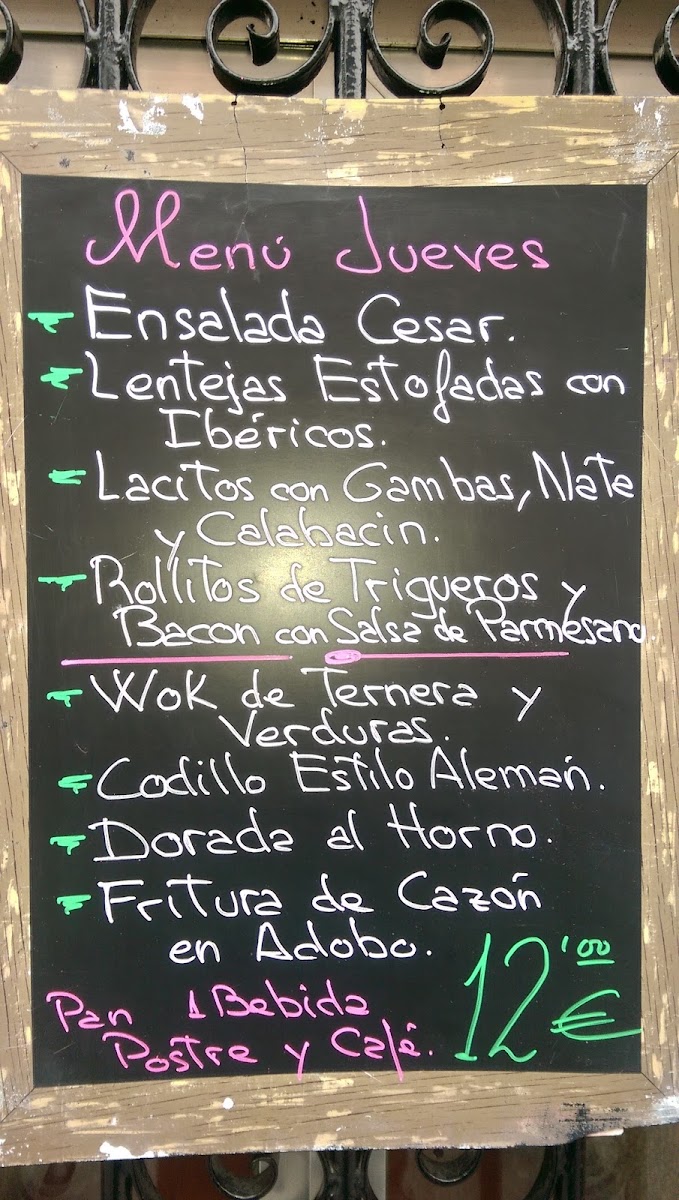 Menú Jueves
- Ensalada Cesar.
- Lentejas Estofadas con
Ibéricos.
- Lacitos con Gambas, Nata
y Calabacin.
- Rollitos de Trigueros y
Bacon con Salsa de Parmesano.
- Wok de Ternera y
Verduras.
- Codillo Estilo Alemán.
- Dorada al Horno.
- Fritura de Cazón
en Adobo.
Pan 1 Bebida
Postre y Café.
12'00 €